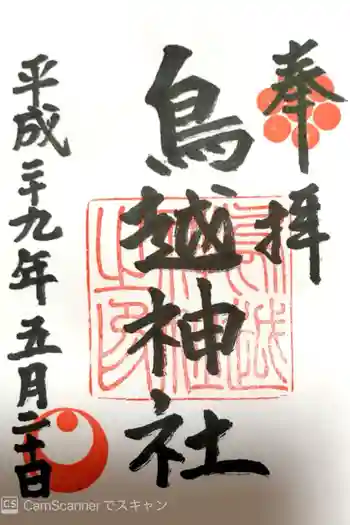 奉拝
鳥越神社
平成二十九年五月二十日
CS CamScanner でスキャン